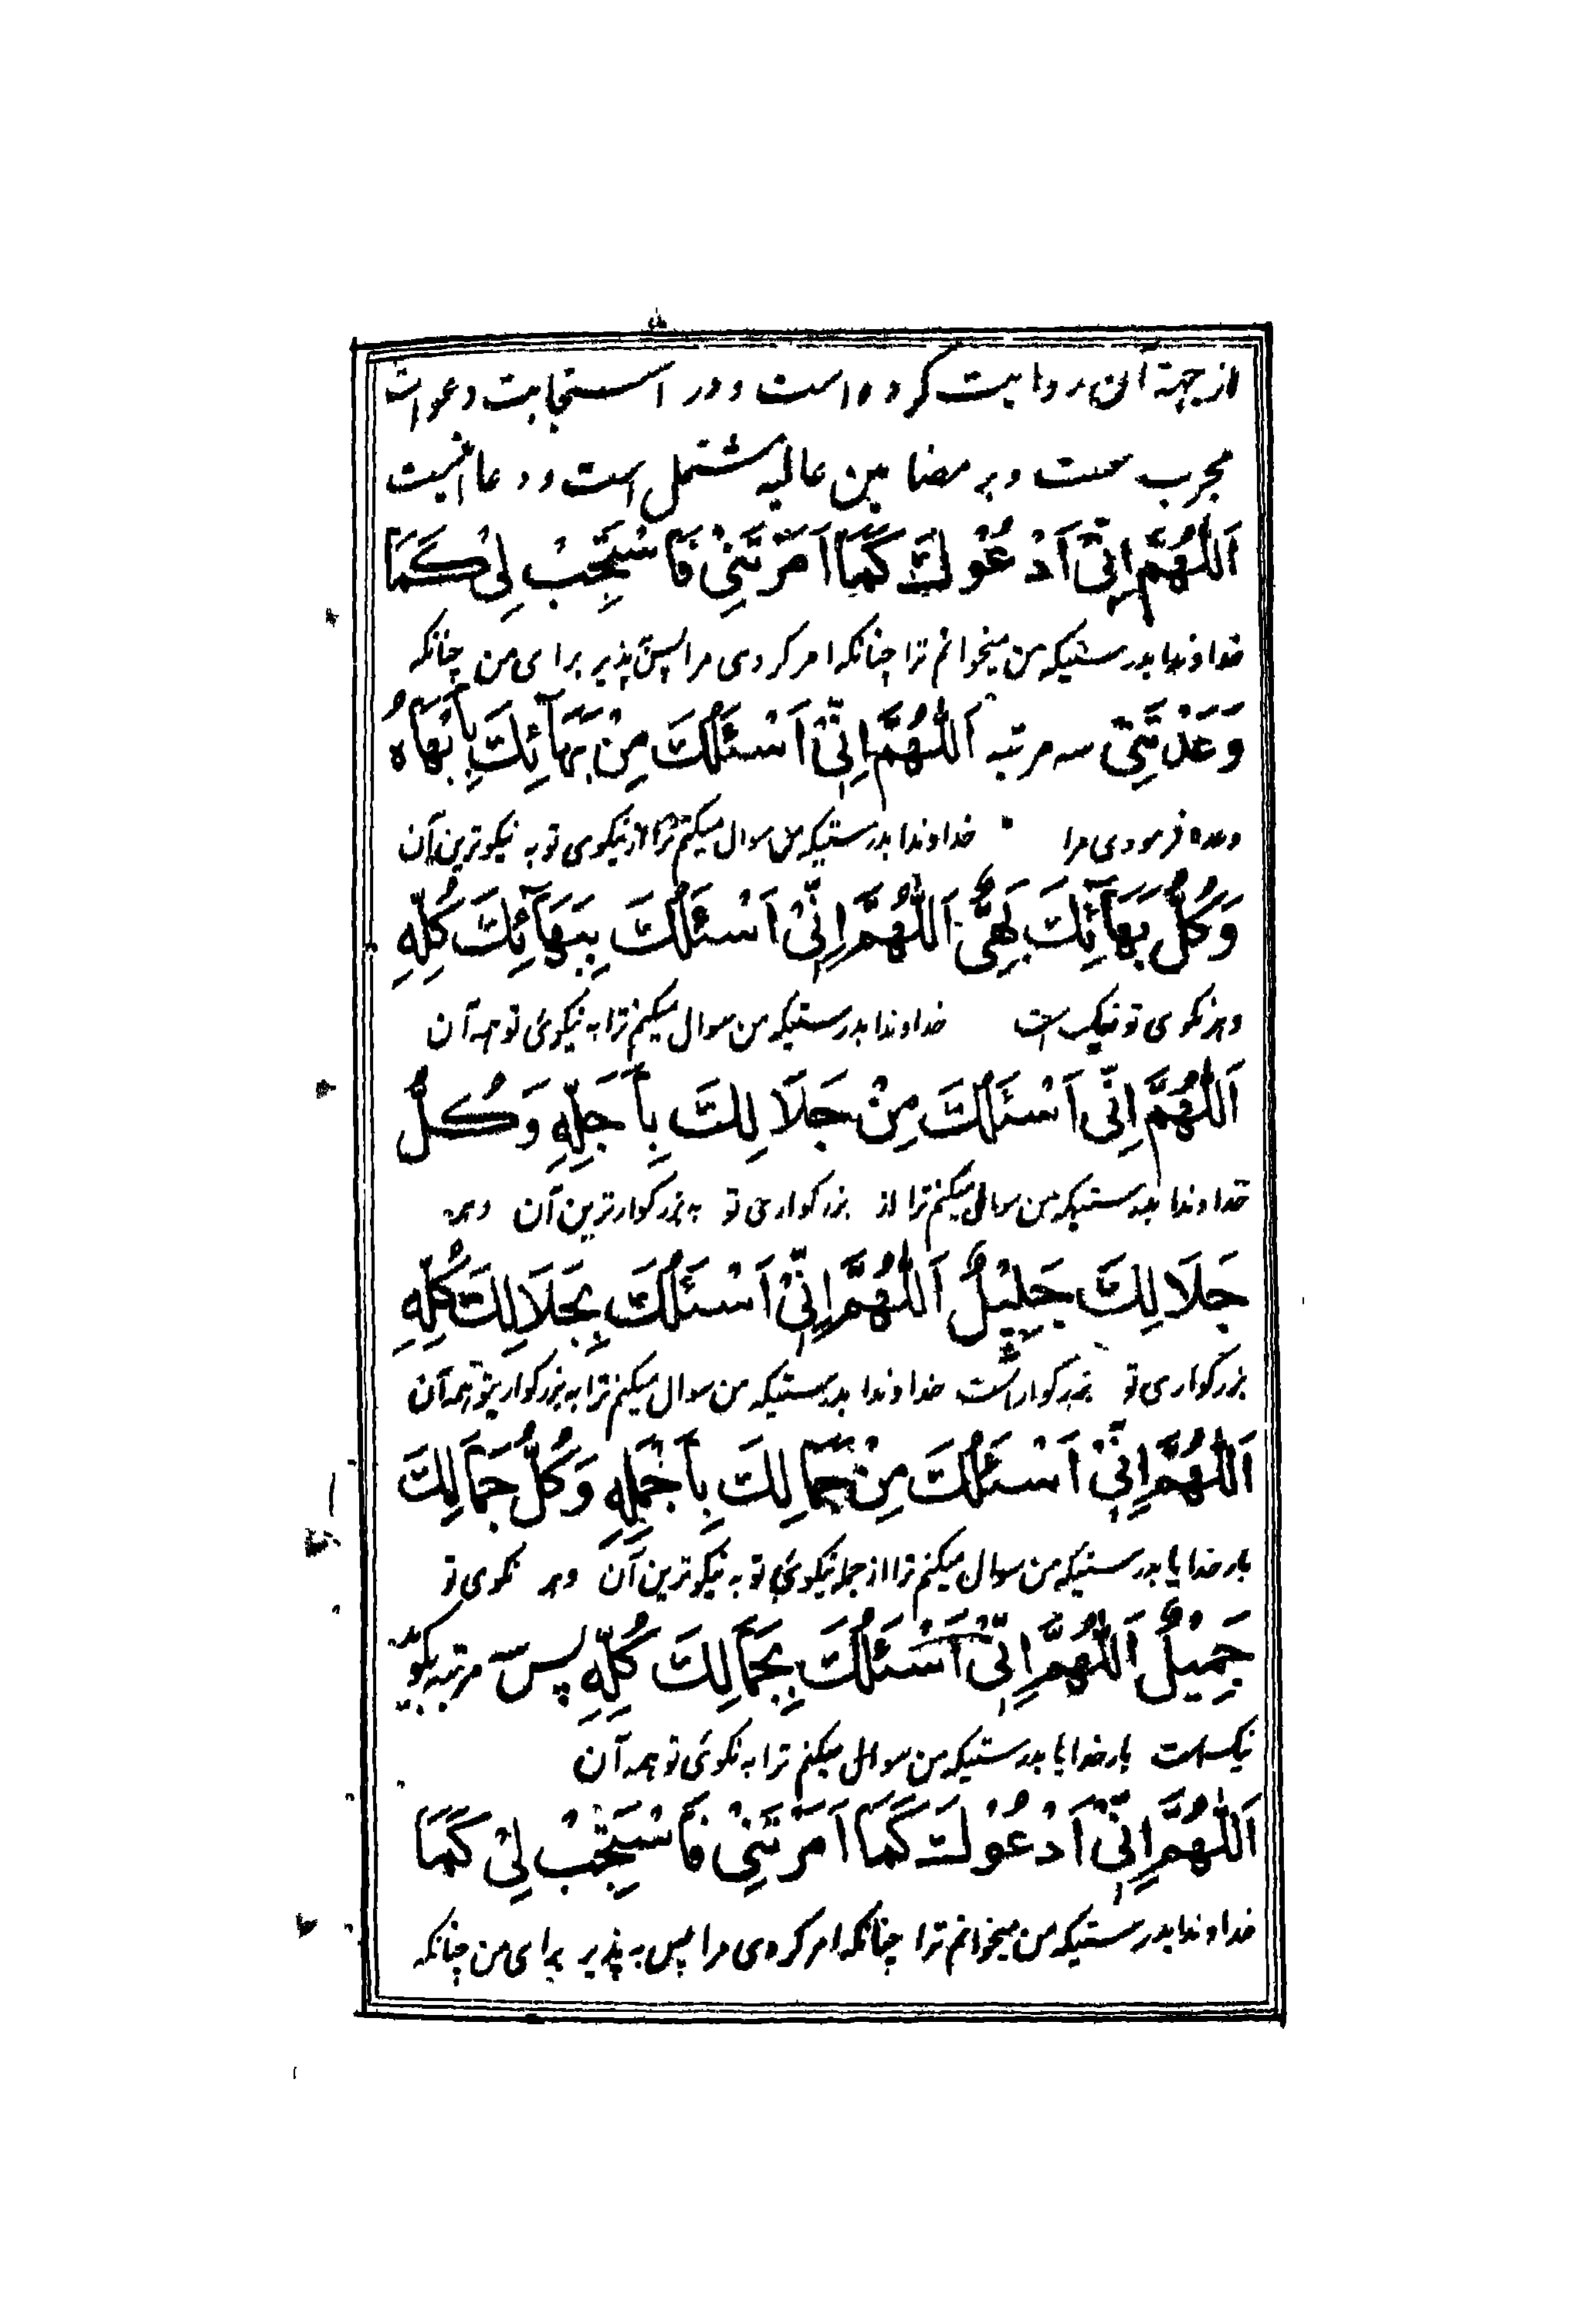 از جهة آن روایت کرده است و در استجابت دعوات
مجرب ست و بر مضامین عالیه مشتمل است و دعا اینست
اَللّٰهُمَّ اِنِّیْ اَدْعُوْكَ كَمَا اَمَرْتَنِیْ فَاسْتَجِبْ لِیْ كَمَا
خداوندا بدرستیکه من میخوانم ترا چنانکه امر کردی مرا پس بپذیر برای من چنانکه
وَعَدْتَنِیْ سه مرتبه اَللّٰهُمَّ اِنِّیْ اَسْئَلُكَ مِنْ بَهَآئِكَ بِاَبْهَاهُ
وعده فرمودی مرا خداوندا بدرستیکه من سوال میکنم ترا از نیکوی تو به نیکوترین آن
وَكُلُّ بَهَآئِكَ بَهِیٌّ اَللّٰهُمَّ اِنِّیْ اَسْئَلُكَ بِبَهَآئِكَ كُلِّهِ
و هر نکوی تو نیک است خداوندا بدرستیکه من سوال میکنم ترا به نیکوئ تو همه آن
اَللّٰهُمَّ اِنِّی اَسْئَلُكَ مِنْ جَلَالِكَ بِاَجَلِّهِ وَكُلُّ
خداوندا بدرستیکه من سوال میکنم ترا از بزرکواری تو به بزرکوارترین آن و همه
جَلَالِكَ جَلِیْلٌ اَللّٰهُمَّ اِنِّیْ اَسْئَلُكَ بِجَلَالِكَ كُلِّهِ
بزرکواری تو بزرکوار است خداوندا بدرستیکه من سوال میکنم ترا به بزرکواری تو همه آن
اَللّٰهُمَّ اِنِّیْ اَسْئَلُكَ مِنْ جَمَالِكَ بِاَجْمَلِهِ وَكُلُّ جَمَالِكَ
بار خدایا بدرستیکه من سوال میکنم ترا از جمله نیکوئ تو به نیکوترین آن و هر نکوی تو
جَمِیْلٌ اَللّٰهُمَّ اِنِّیْ اَسْئَلُكَ بِجَمَالِكَ كُلِّهِ پس سه مرتبه بکوید
نیک است بار خدایا بدرستیکه من سوال میکنم ترا به نکوئ تو همه آن
اَللّٰهُمَّ اِنِّیْ اَدْعُوْكَ كَمَا اَمَرْتَنِیْ فَاسْتَجِبْ لِیْ كَمَا
خداوندا بدرستیکه من میخوانم ترا چنانکه امر کردی مرا پس به پذیر برای من چنانکه